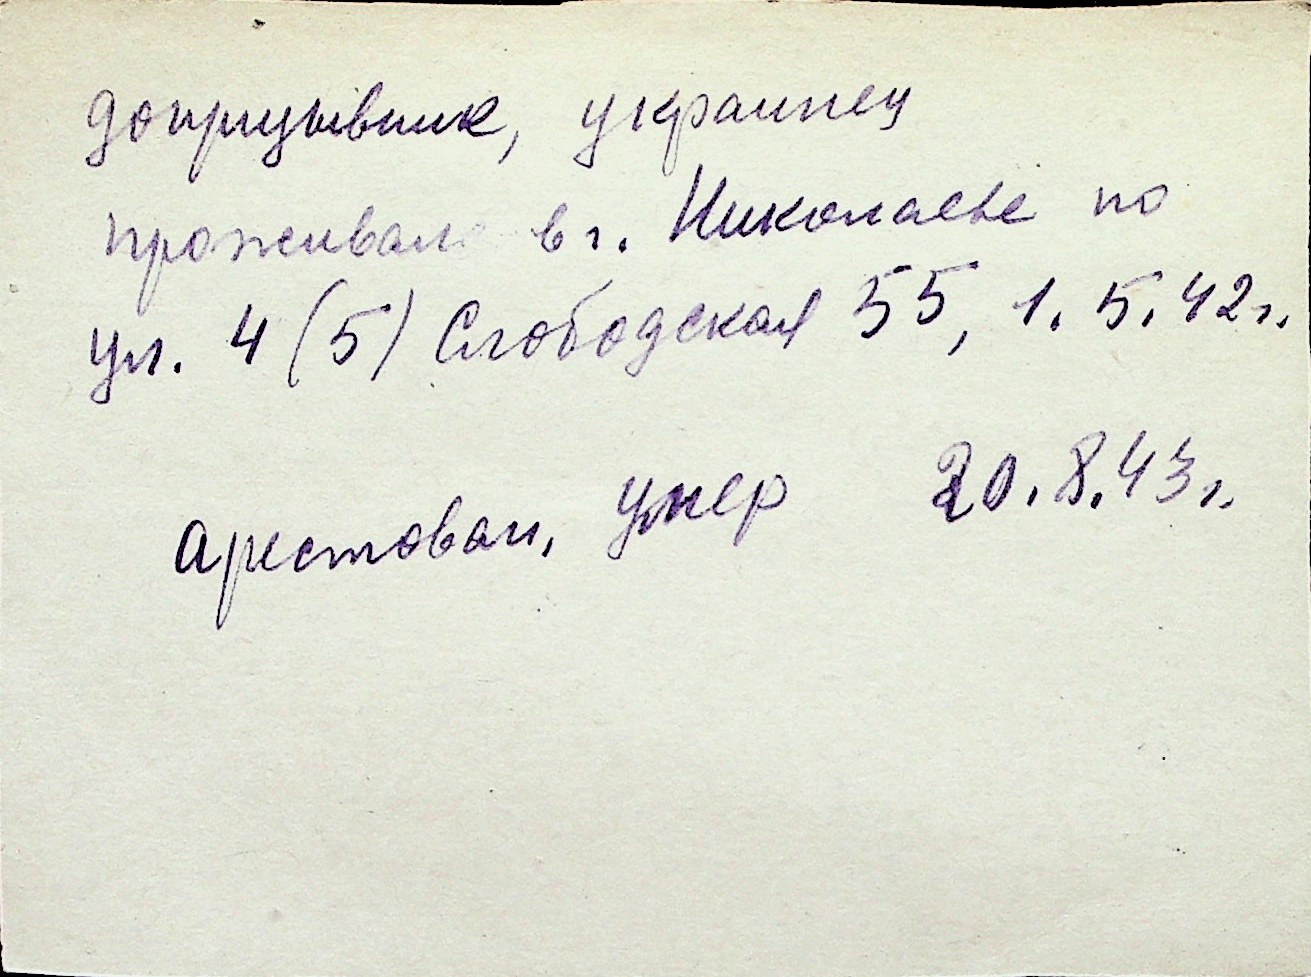 допризывник, украинец
проживал в г. Николаеве по
ул. 4 (5) Слободская 55, 1.5.42г.
арестован, умер 20.8.43г.